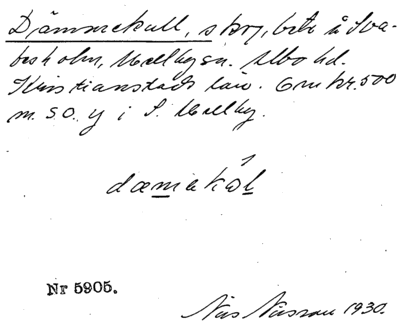 Dämmekull, skog, bete å Sva-
besholm, Mellby sn. Albo hd.
Kristianstads län. Omkr. 500
m. SO. y i S. Mellby.
dæmakờl
Nr 5905.
Nils 1930.